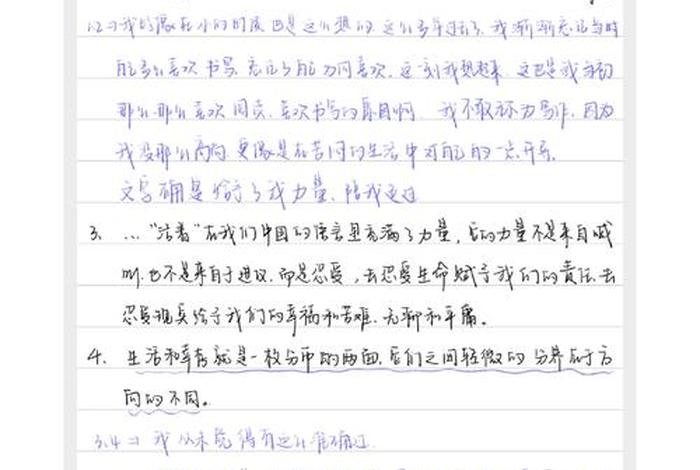 1.2→我好像在小的时候也是这么想的,这么多年过去了,我渐渐忘记当时
自己多么喜欢书写,忘记了自己为何喜欢,这一刻我想起来,这也是我当初
那么那么喜欢阅读,喜欢书写的原因啊。我不敢称为写作,因为
我没那么高尚,更像是在苦闷的生活中对自己的一点开导。
文字确是给予了我力量,陪我走过
3. …“活着”在我们中国的语言里充满了力量,它的力量不是来自喊
叫,也不是来自于进攻,而是忍受,去忍受生命赋予我们的责任,去
忍受现实给予我们的幸福和苦难、无聊和平庸。
4. 生活和幸存就是一枚分币的两面,它们之间轻微的分界在于方
向的不同。
3.4→我从未觉得有这么准确过